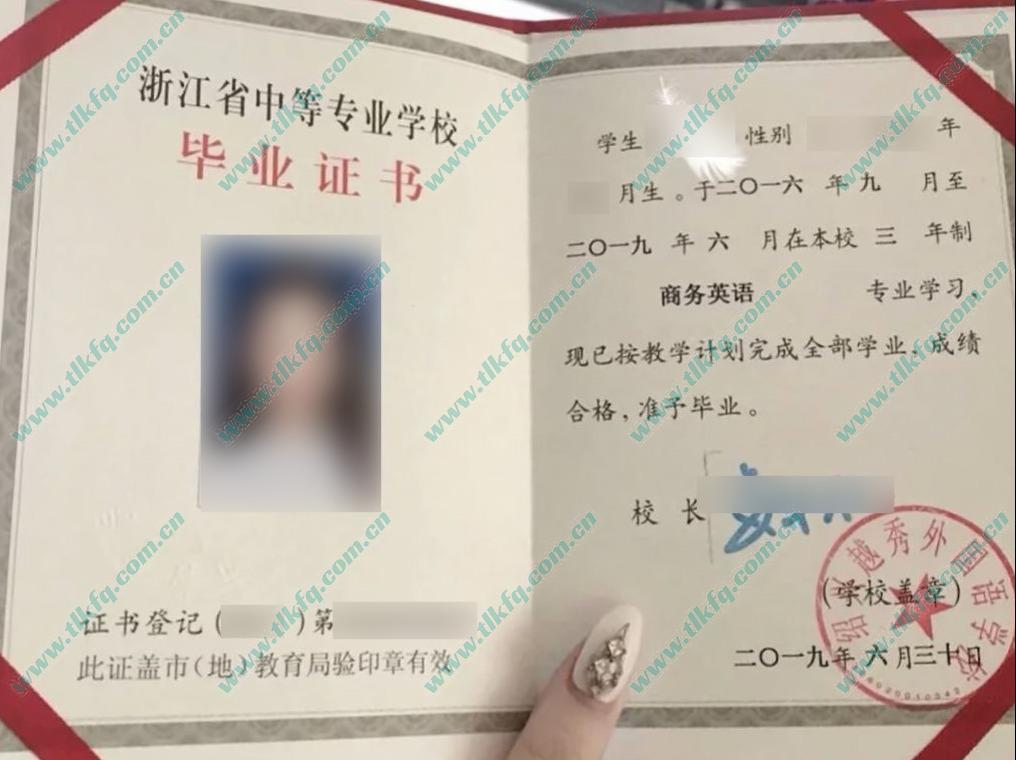 浙江省中等专业学校
毕业证书
证书登记( )第
此证盖市(地)教育局验印章有效
学生 性别 年
月生。于二〇一六 年 九 月至
二〇一九 年 六 月在本校 三 年制
商务英语 专业学习,
现已按教学计划完成全部学业、成绩
合格,准予毕业。
校 长
(学校盖章)
二〇一九年 六月三十日
绍兴越秀外国语学校
www.tlkfq.com.cn